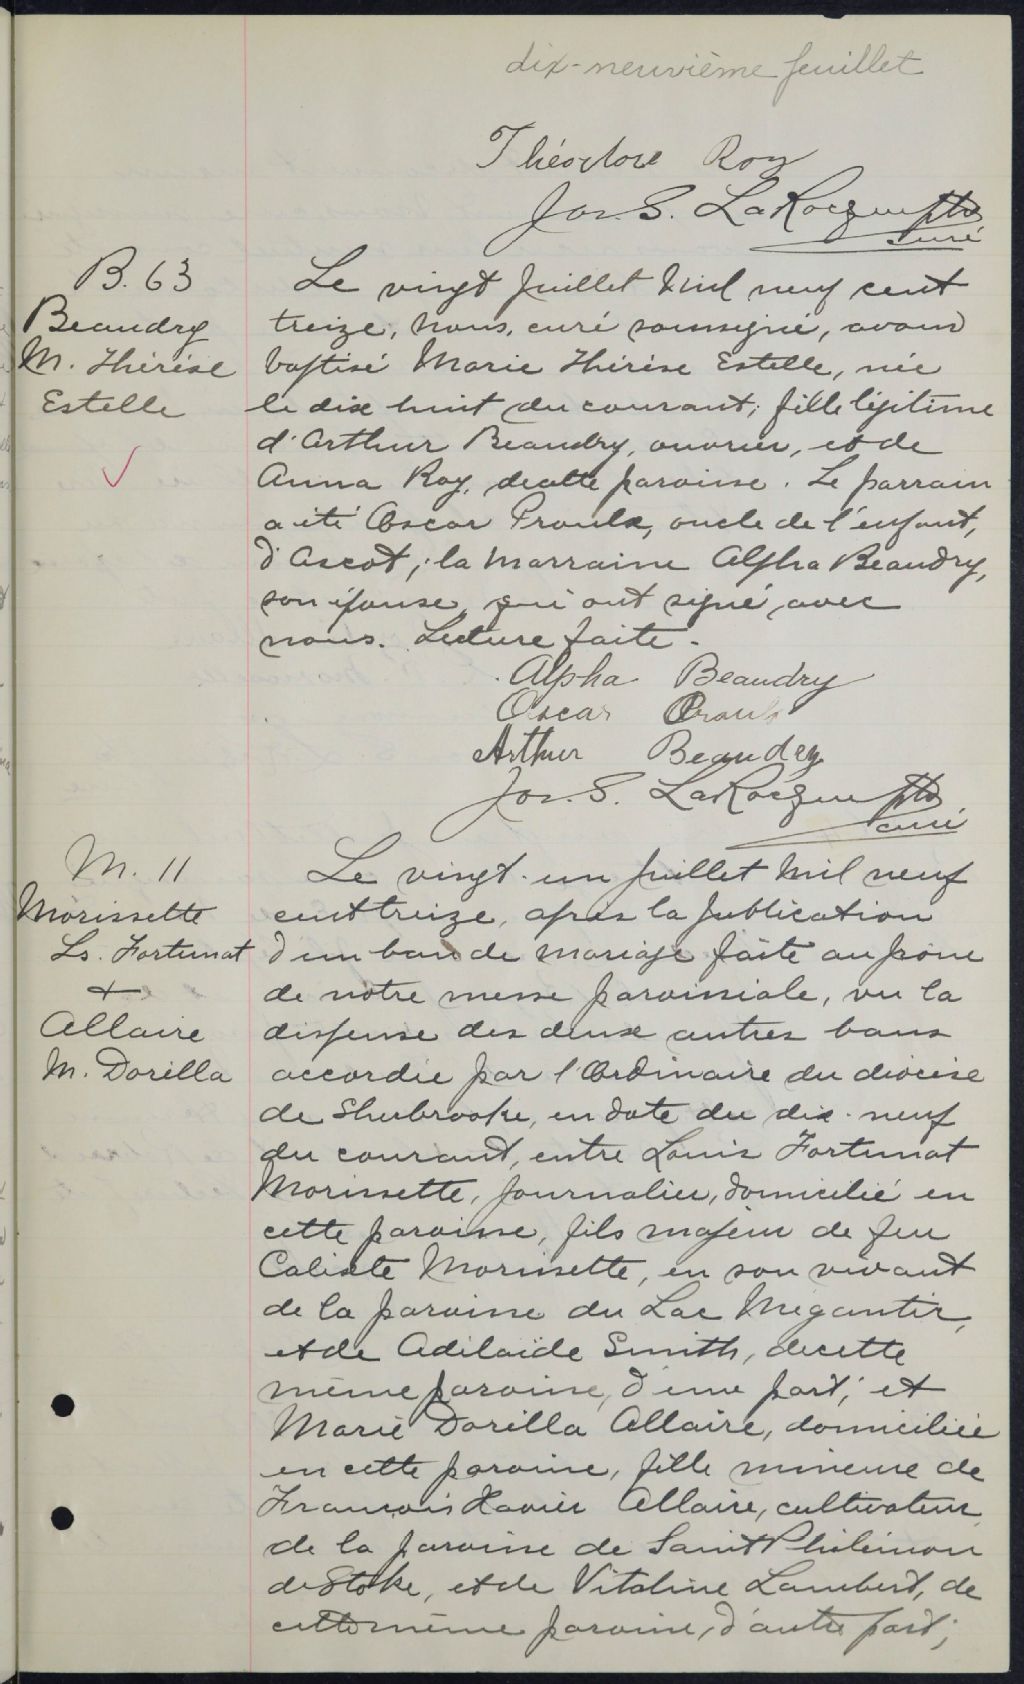 dix-neuvième feuillet
Théodore Roy
Jos. S. LaRocque Ptre
curé
B. 63
Beaudry
M. Thérèse
Estelle
Le vingt Juillet Mil neuf cent
treize, nous, curé soussigné, avons
baptisé Marie Thérèse Estelle, née
le dix huit du courant, fille légitime
d'Arthur Beaudry, ouvrier, et de
Anna Roy, de cette paroisse. Le parrain
a été Oscar Proulx, oncle de l'enfant,
d'Ascot, ; la Marraine Alpha Beaudry,
son épouse, qui ont signé, avec
nous. Lecture faite.
Alpha Beaudry
Oscar Proulx
Arthur Beaudry
Jos. S. LaRocque Ptre
curé
M. 11
Morissette
Ls. Fortunat
+
Allaire
M. Dorilla
Le vingt-un Juillet Mil neuf
cent treize, après la publication
d'un ban de mariage faite au prône
de notre messe paroissiale, vu la
dispense des deux autres bans
accordée par l'Ordinaire du diocèse
de Sherbrooke, en date du dix-neuf
du courant, entre Louis Fortunat
Morissette, Journalier, domicilié en
cette paroisse, fils majeur de feu
Calixte Morissette, en son vivant
de la paroisse du Lac Mégantic,
et de Adélaïde Smith, de cette
même paroisse, d'une part, et
Marie Dorilla Allaire, domiciliée
en cette paroisse, fille mineure de
François Xavier Allaire, cultivateur,
de la paroisse de Saint Philémon
de Stoke, et de Vitaline Lambert, de
cette même paroisse, d'autre part;